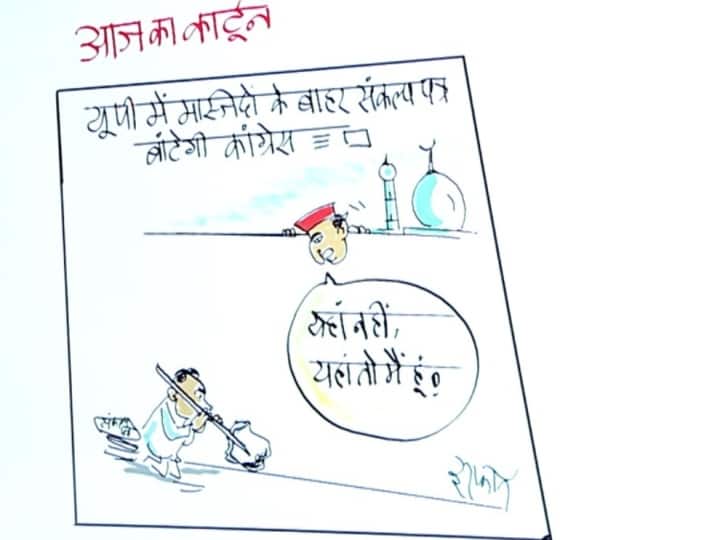 आज का कार्टून
यूपी में मस्जिदों के बाहर संकल्प पत्र
बांटेगी कांग्रेस
यहां नहीं,
यहां तो मैं हूं!